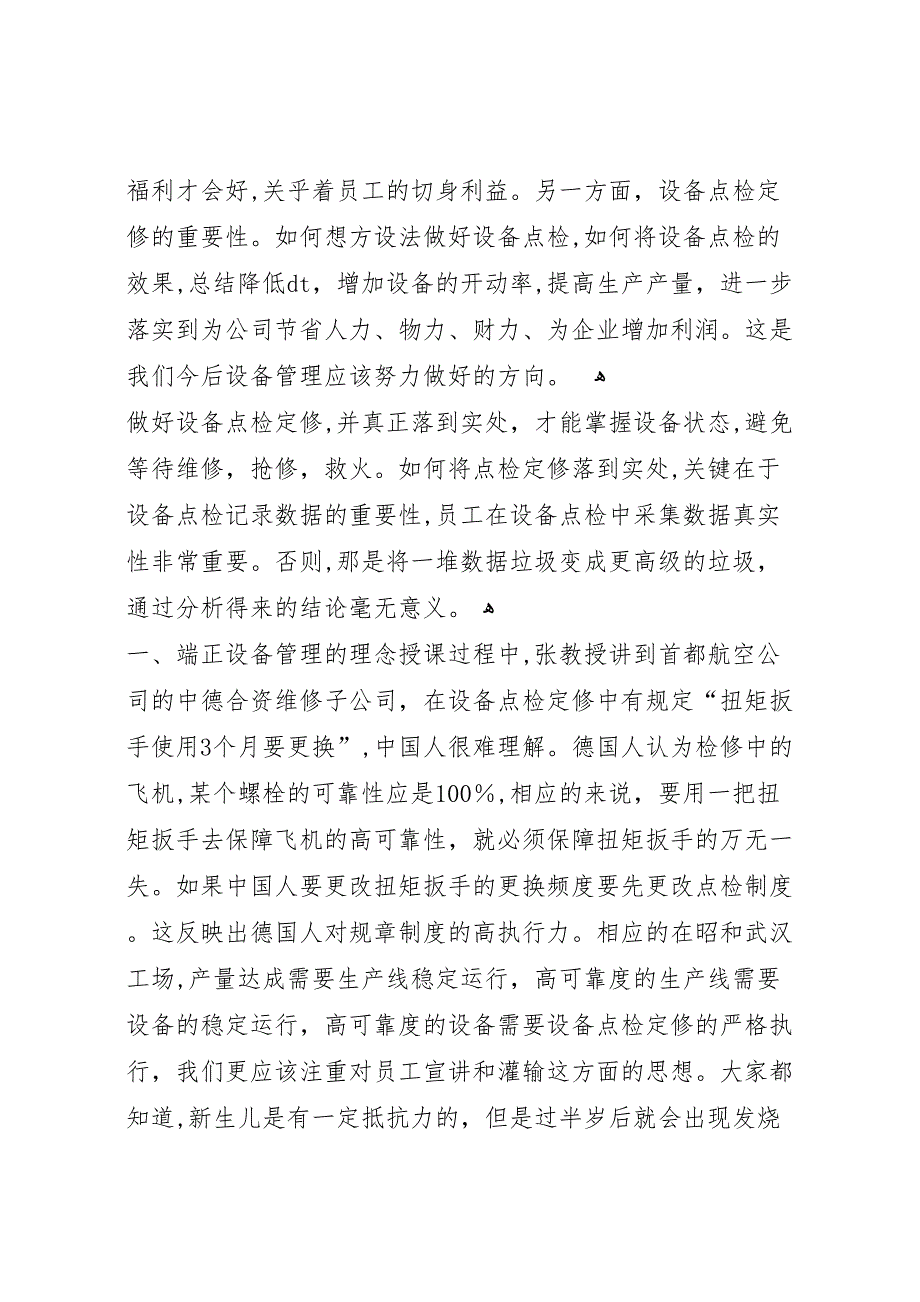 福利才会好,关乎着员工的切身利益。另一方面，设备点检定
修的重要性。如何想方设法做好设备点检,如何将设备点检的
效果,总结降低dt，增加设备的开动率,提高生产产量，进一步
落实到为公司节省人力、物力、财力、为企业增加利润。这是
我们今后设备管理应该努力做好的方向。 ﻫ
做好设备点检定修,并真正落到实处，才能掌握设备状态,避免
等待维修，抢修，救火。如何将点检定修落到实处,关键在于
设备点检记录数据的重要性,员工在设备点检中采集数据真实
性非常重要。否则,那是将一堆数据垃圾变成更高级的垃圾，
通过分析得来的结论毫无意义。 ﻫ
一、端正设备管理的理念授课过程中,张教授讲到首都航空公
司的中德合资维修子公司，在设备点检定修中有规定“扭矩扳
手使用3个月要更换”,中国人很难理解。德国人认为检修中的
飞机,某个螺栓的可靠性应是100％,相应的来说，要用一把扭
矩扳手去保障飞机的高可靠性，就必须保障扭矩扳手的万无一
失。如果中国人要更改扭矩扳手的更换频度要先更改点检制度
。这反映出德国人对规章制度的高执行力。相应的在昭和武汉
工场,产量达成需要生产线稳定运行，高可靠度的生产线需要
设备的稳定运行，高可靠度的设备需要设备点检定修的严格执
行，我们更应该注重对员工宣讲和灌输这方面的思想。大家都
知道,新生儿是有一定抵抗力的，但是过半岁后就会出现发烧